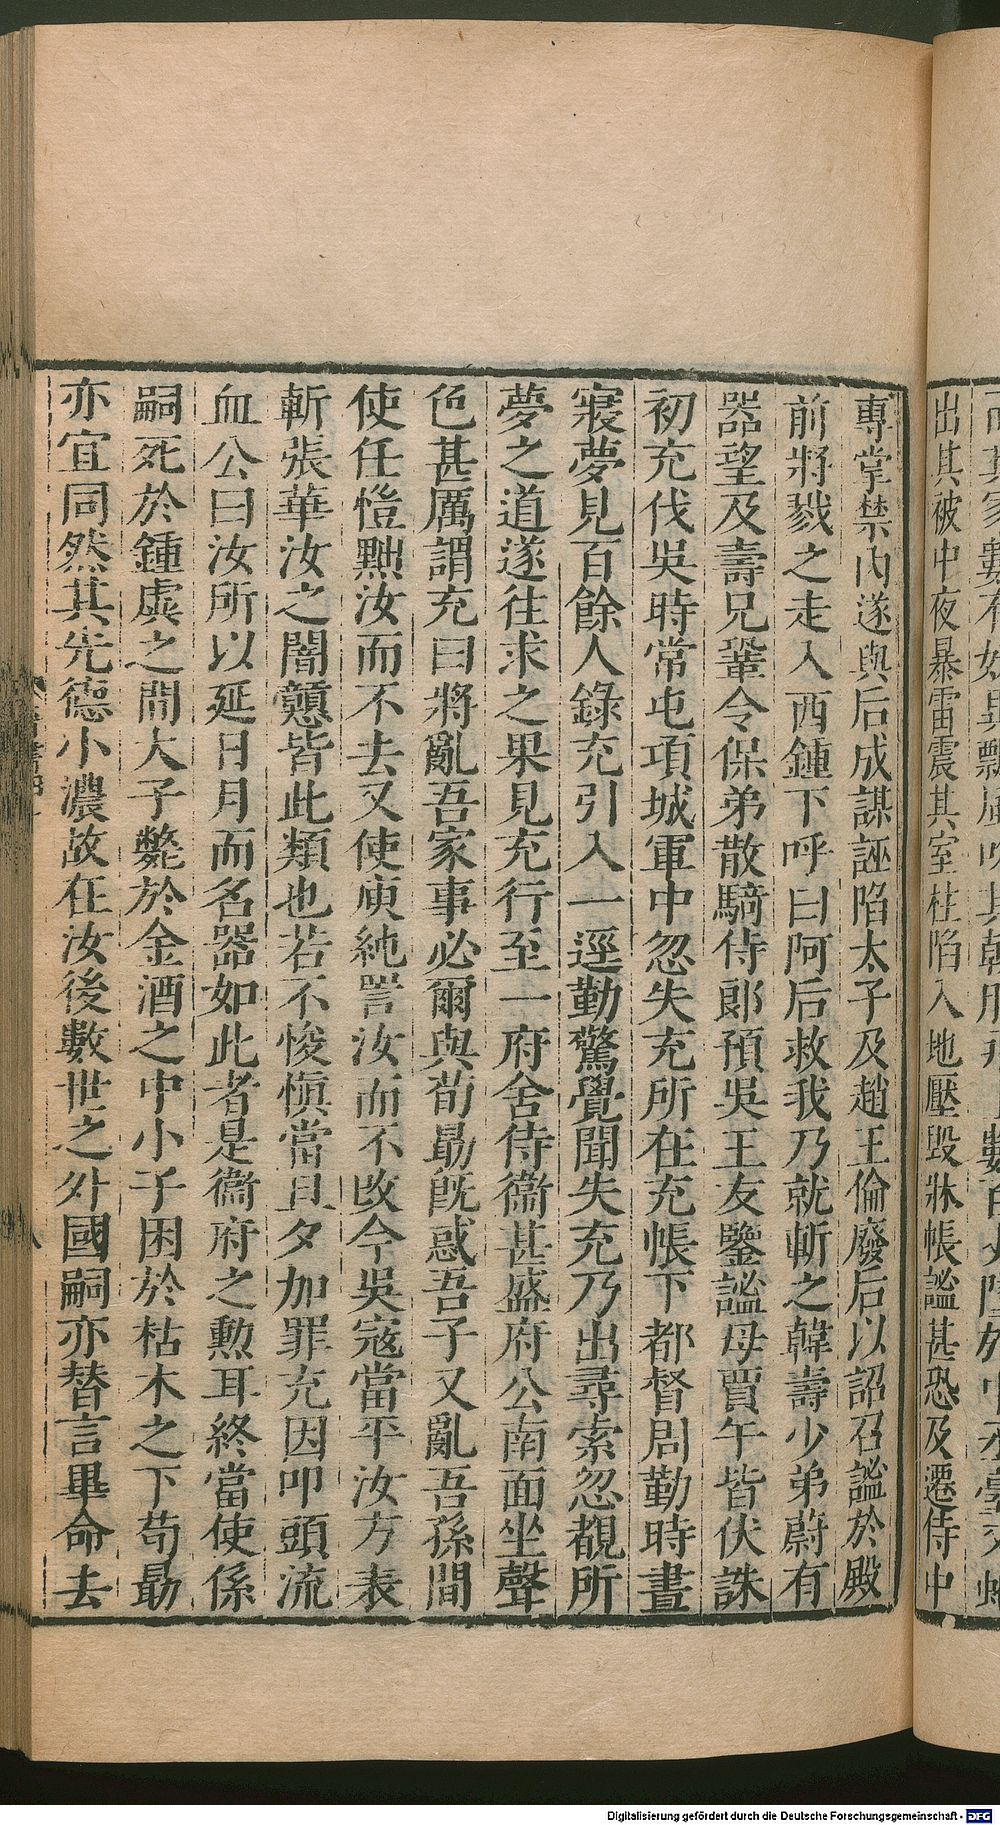 出其被中夜暴雷震其室柱陷入地壓毀牀帳謐甚恐及遷侍中
專掌禁內遂與后成謀誣陷太子及趙王倫廢后以詔召謐於殿
前將戮之走入西鍾下呼曰阿后救我乃就斬之韓壽少弟蔚有
器望及壽兄鞏令保弟散騎侍郎預吳王友鑒謐母賈午皆伏誅
初充伐吳時常屯項城軍中忽失充所在充帳下都督周勤時晝
寢夢見百餘人錄充引入一逕勤驚覺聞失充乃出尋索忽覩所
夢之道遂往求之果見充行至一府舍侍衞甚盛府公南面坐聲
色甚厲謂充曰將亂吾家事必爾與荀勗旣惑吾子又亂吾孫間
使任愷黜汝而不去又使庾純詈汝而不改今吳寇當平汝方表
斬張華汝之闇戇皆此類也若不悛愼當旦夕加罪充因叩頭流
血公曰汝所以延日月而名器如此者是衞府之勲耳終當使係
嗣死於鍾虡之間大子斃於金酒之中小子困於枯木之下荀勗
亦宜同然其先德小濃故在汝後數世之外國嗣亦替言畢命去
Digitalisierung gefördert durch die Deutsche Forschungsgemeinschaft - DFG